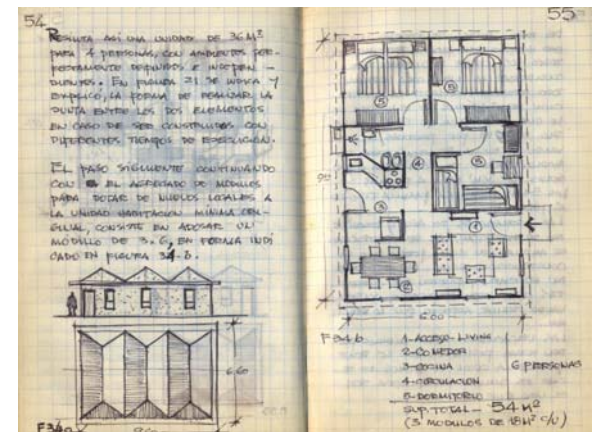 54
RESULTA ASÍ UNA UNIDAD DE 36 M²
PARA 4 PERSONAS, CON AMBIENTES PER-
FECTAMENTE DEFINIDOS E INDEPEN-
DIENTES. EN FIGURA 21 SE INDICA Y
EXPLICÓ, LA FORMA DE REALIZAR LA
JUNTA ENTRE LOS DOS ELEMENTOS
EN CASO DE SER CONSTRUIDOS CON
DIFERENTES TIEMPOS DE EJECUCIÓN.
EL PASO SIGUIENTE CONTINUANDO
CON EL AGREGADO DE MÓDULOS
PARA DOTAR DE NUEVOS LOCALES A
LA UNIDAD HABITACION MÍNIMA
CONSISTE EN ADOSAR UN
MÓDULO DE 3.6, EN FORMA INDI
CADO EN FIGURA 34-B.
6.60
F34a
55
5
5
4
5
3
1
2
6.00
F34b
1-ACCESO-LIVING
2-COMEDOR
3-COCINA
4-CIRCULACION
5-DORMITORIO
6 PERSONAS
SUP. TOTAL - 54 M²
(3 MODULOS DE 18 M² C/U)